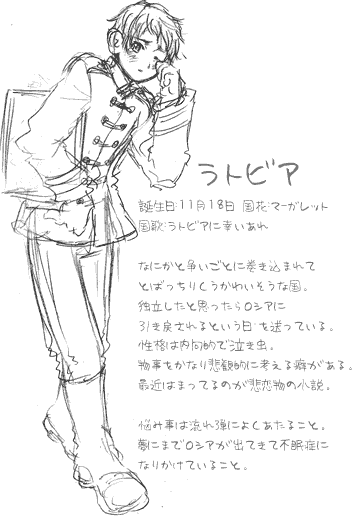 ラトビア
誕生日:11月18日 国花:マーガレット
国歌:ラトビアに幸いあれ
なにかと争いごとに巻き込まれて
とばっちりくうかわいそうな国。
独立したと思ったらロシアに
引き戻されるという日々を送っている。
性格は内向的で泣き虫。
物事をかなり悲観的に考える癖がある。
最近はまってるのが悲恋物の小説。
悩み事は流れ弾によくあたること。
夢にまでロシアが出てきて不眠症に
なりかけていること。